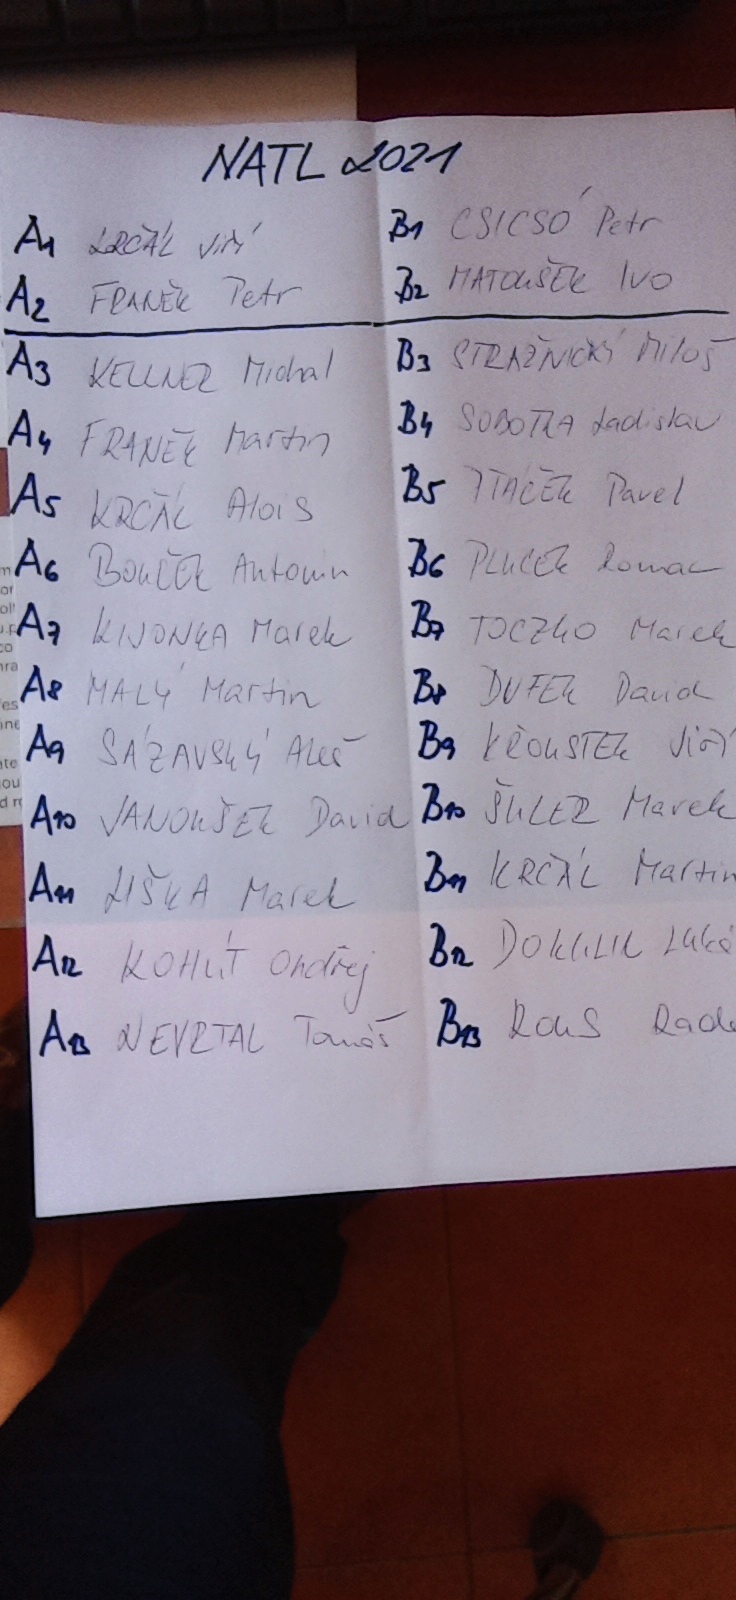 NATL 2021
A1 KRČÁL Jiří B1 CSICSÓ Petr
A2 FRANĚK Petr B2 MATOUŠEK Ivo
A3 KELLNER Michal B3 STRAŽNICKÝ Miloš
A4 FRANĚK Martin B4 SOBOTKA Ladislav
A5 KRČÁL Alois B5 PTÁČEK Pavel
A6 BOUČEK Antonín B6 PLUCEK Roman
A7 KIJONKA Marek B7 TOCZKO Marek
A8 MALÝ Martin B8 DUFEK David
A9 SÁZAVSKÝ Aleš B9 KŘOUSTEK Jiří
A10 JANOUŠEK David B10 ŠULER Marek
A11 LIŠKA Marek B11 KRČÁL Martin
A12 KOHÚT Ondřej B12 DOKULIL
A13 NEVRTAL Tomáš B13 ROUS